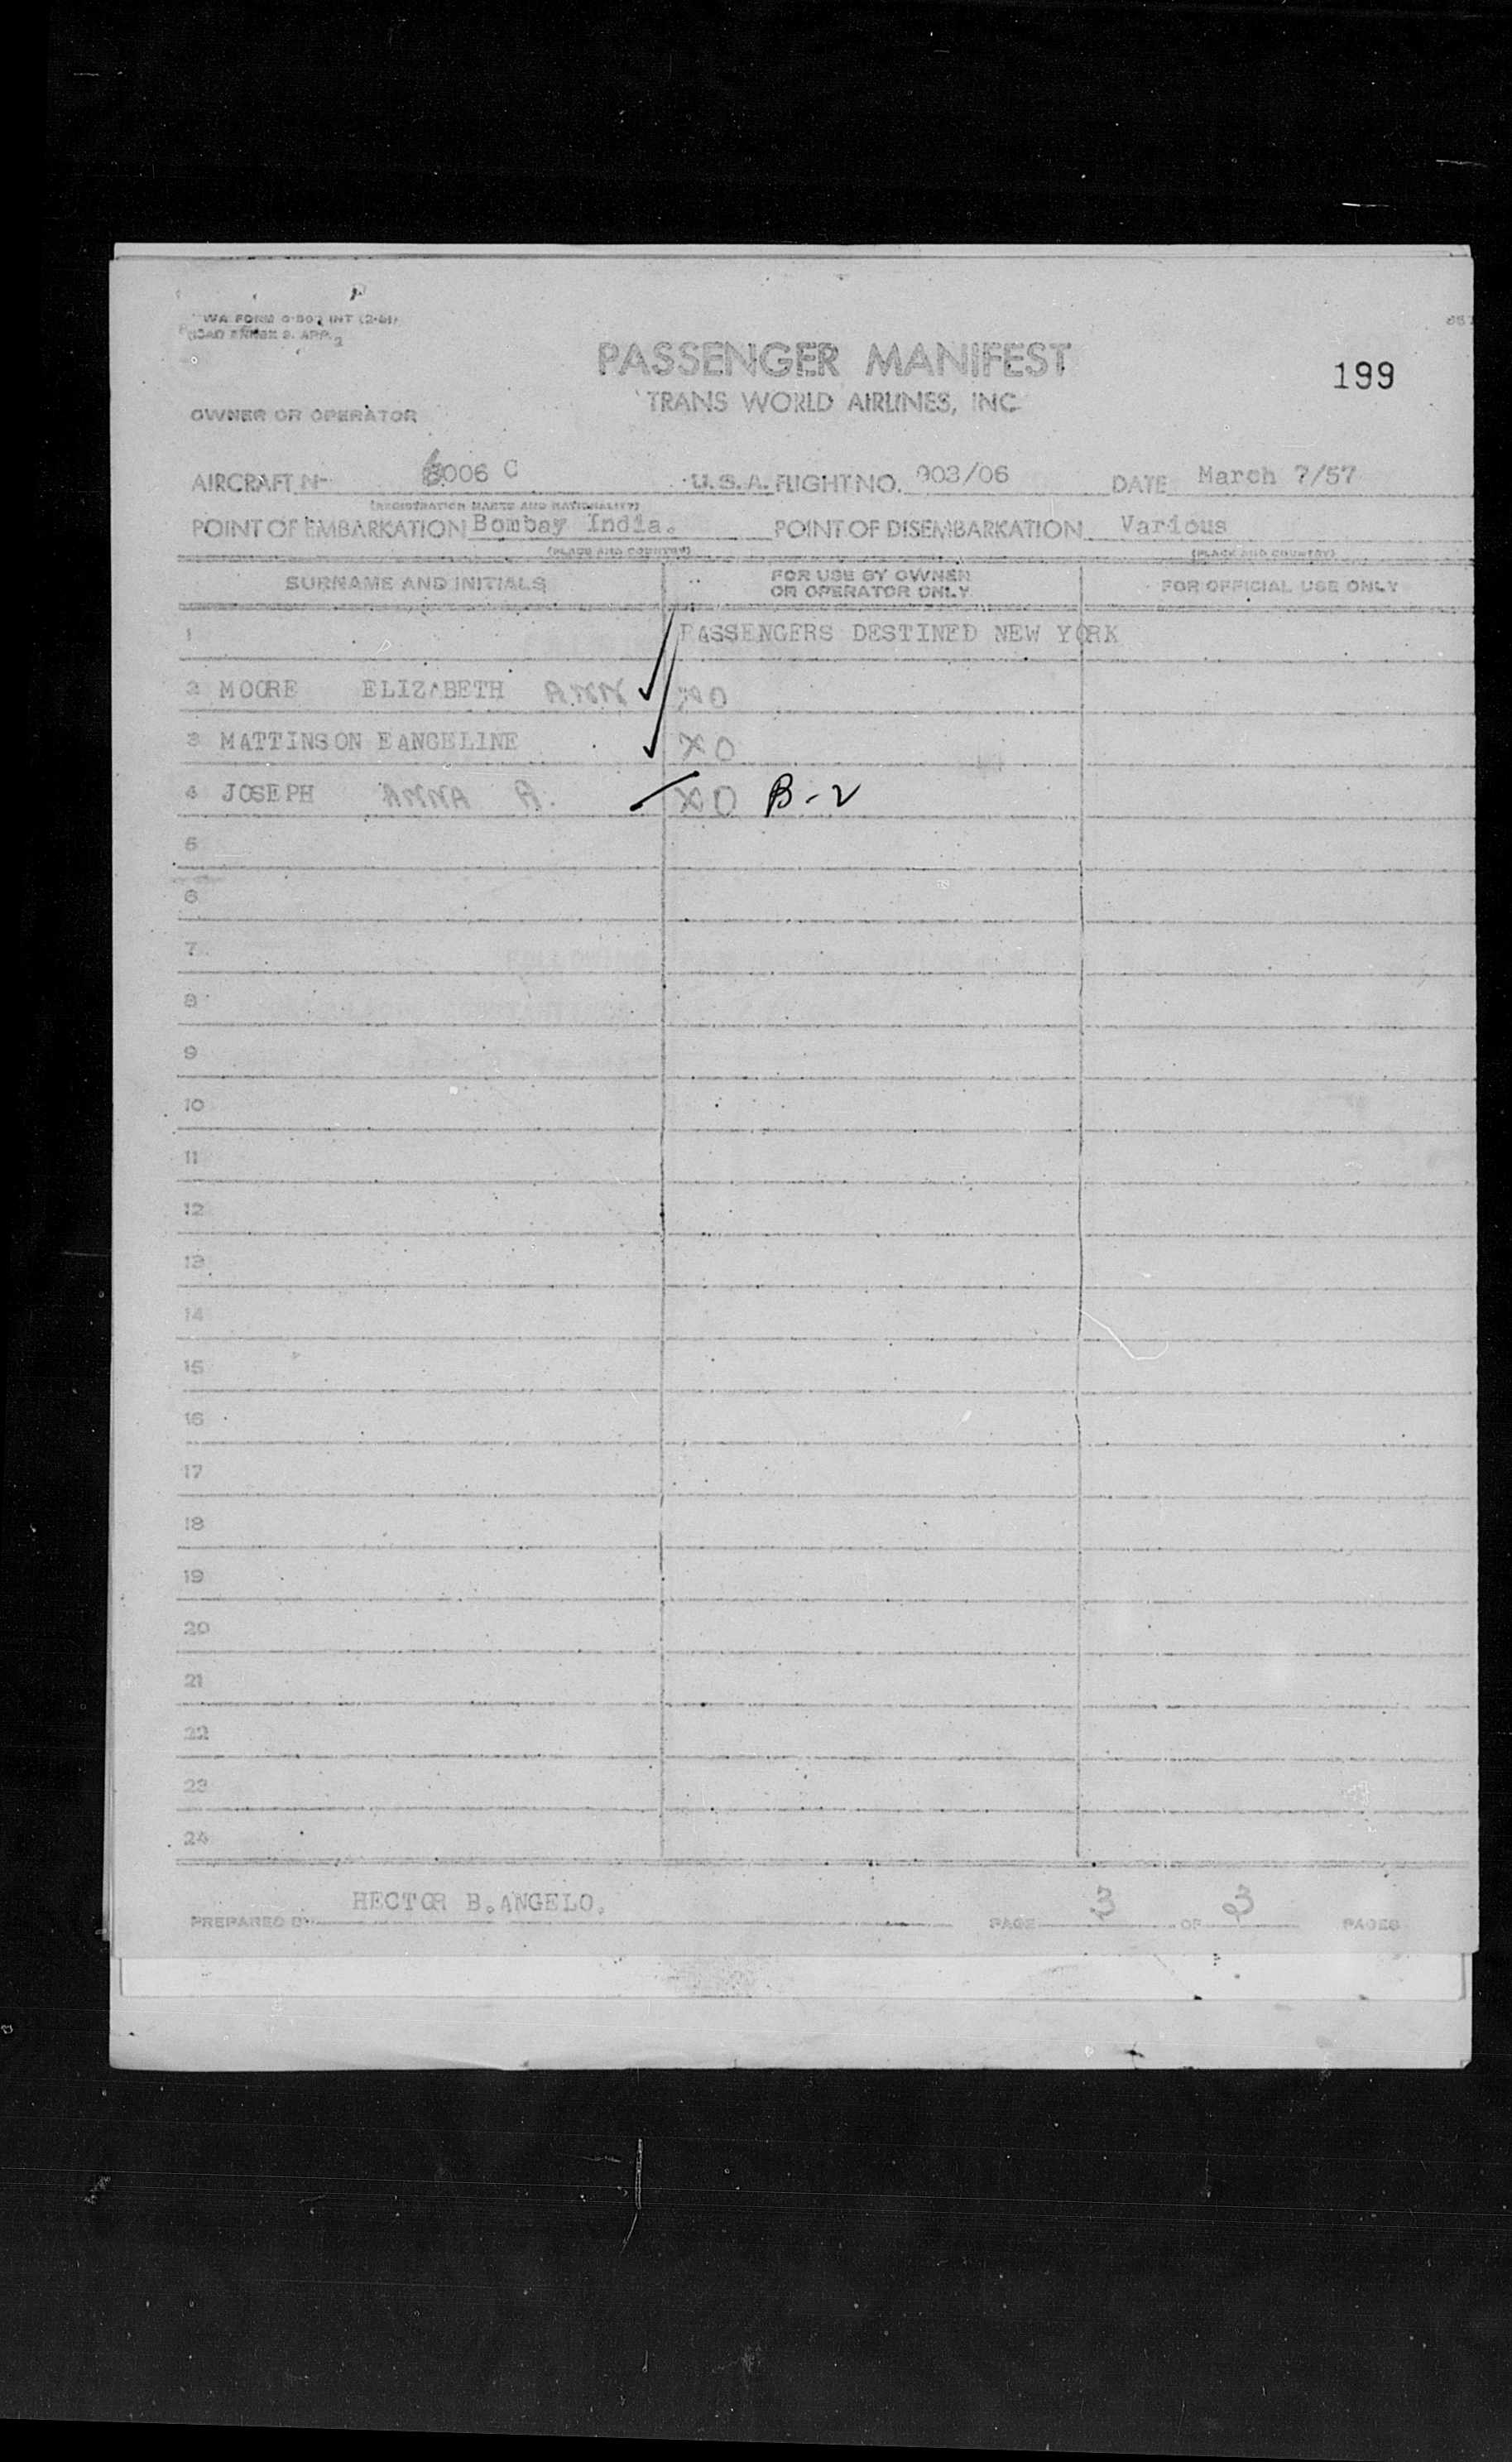 TWA FORM 0-502 INT (2-51)
ICAO ANNEX 9. APP. 2
PASSENGER MANIFEST
199
TRANS WORLD AIRLINES, INC
OWNER OR OPERATOR
AIRCRAFT N- 6006 C U.S.A. FLIGHT NO. 903/06 DATE March 7/57
(REGISTRATION MARKS AND NATIONALITY)
POINT OF EMBARKATION Bombay India. POINT OF DISEMBARKATION Various
(PLACE AND COUNTRY) (PLACE AND COUNTRY)
SURNAME AND INITIALS FOR USE BY OWNER OR OPERATOR ONLY FOR OFFICIAL USE ONLY
1 PASSENGERS DESTINED NEW YORK
2 MOORE ELIZABETH ANN XO
3 MATTINSON EANGELINE XO
4 JOSEPH ANNA A. XO B-2
5
6
7
8
9
10
11
12
13
14
15
16
17
18
19
20
21
22
23
24
PREPARED BY HECTOR B. ANGELO. PAGE 3 OF 3 PAGES